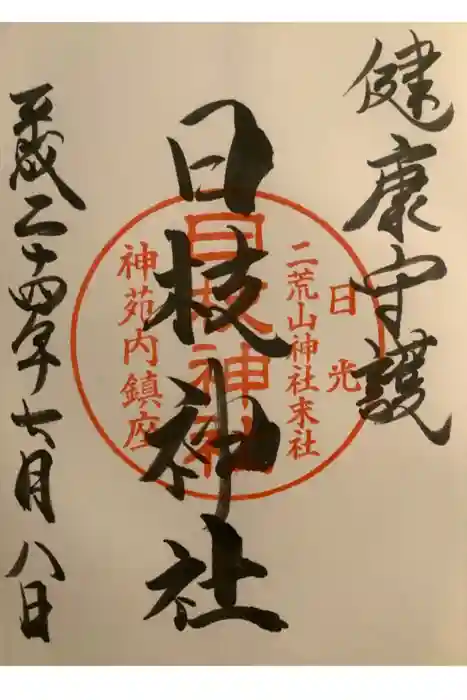 健康守護
日枝神社
平成二十四年六月八日
日光
二荒山神社末社
日枝神社
神苑内鎮座